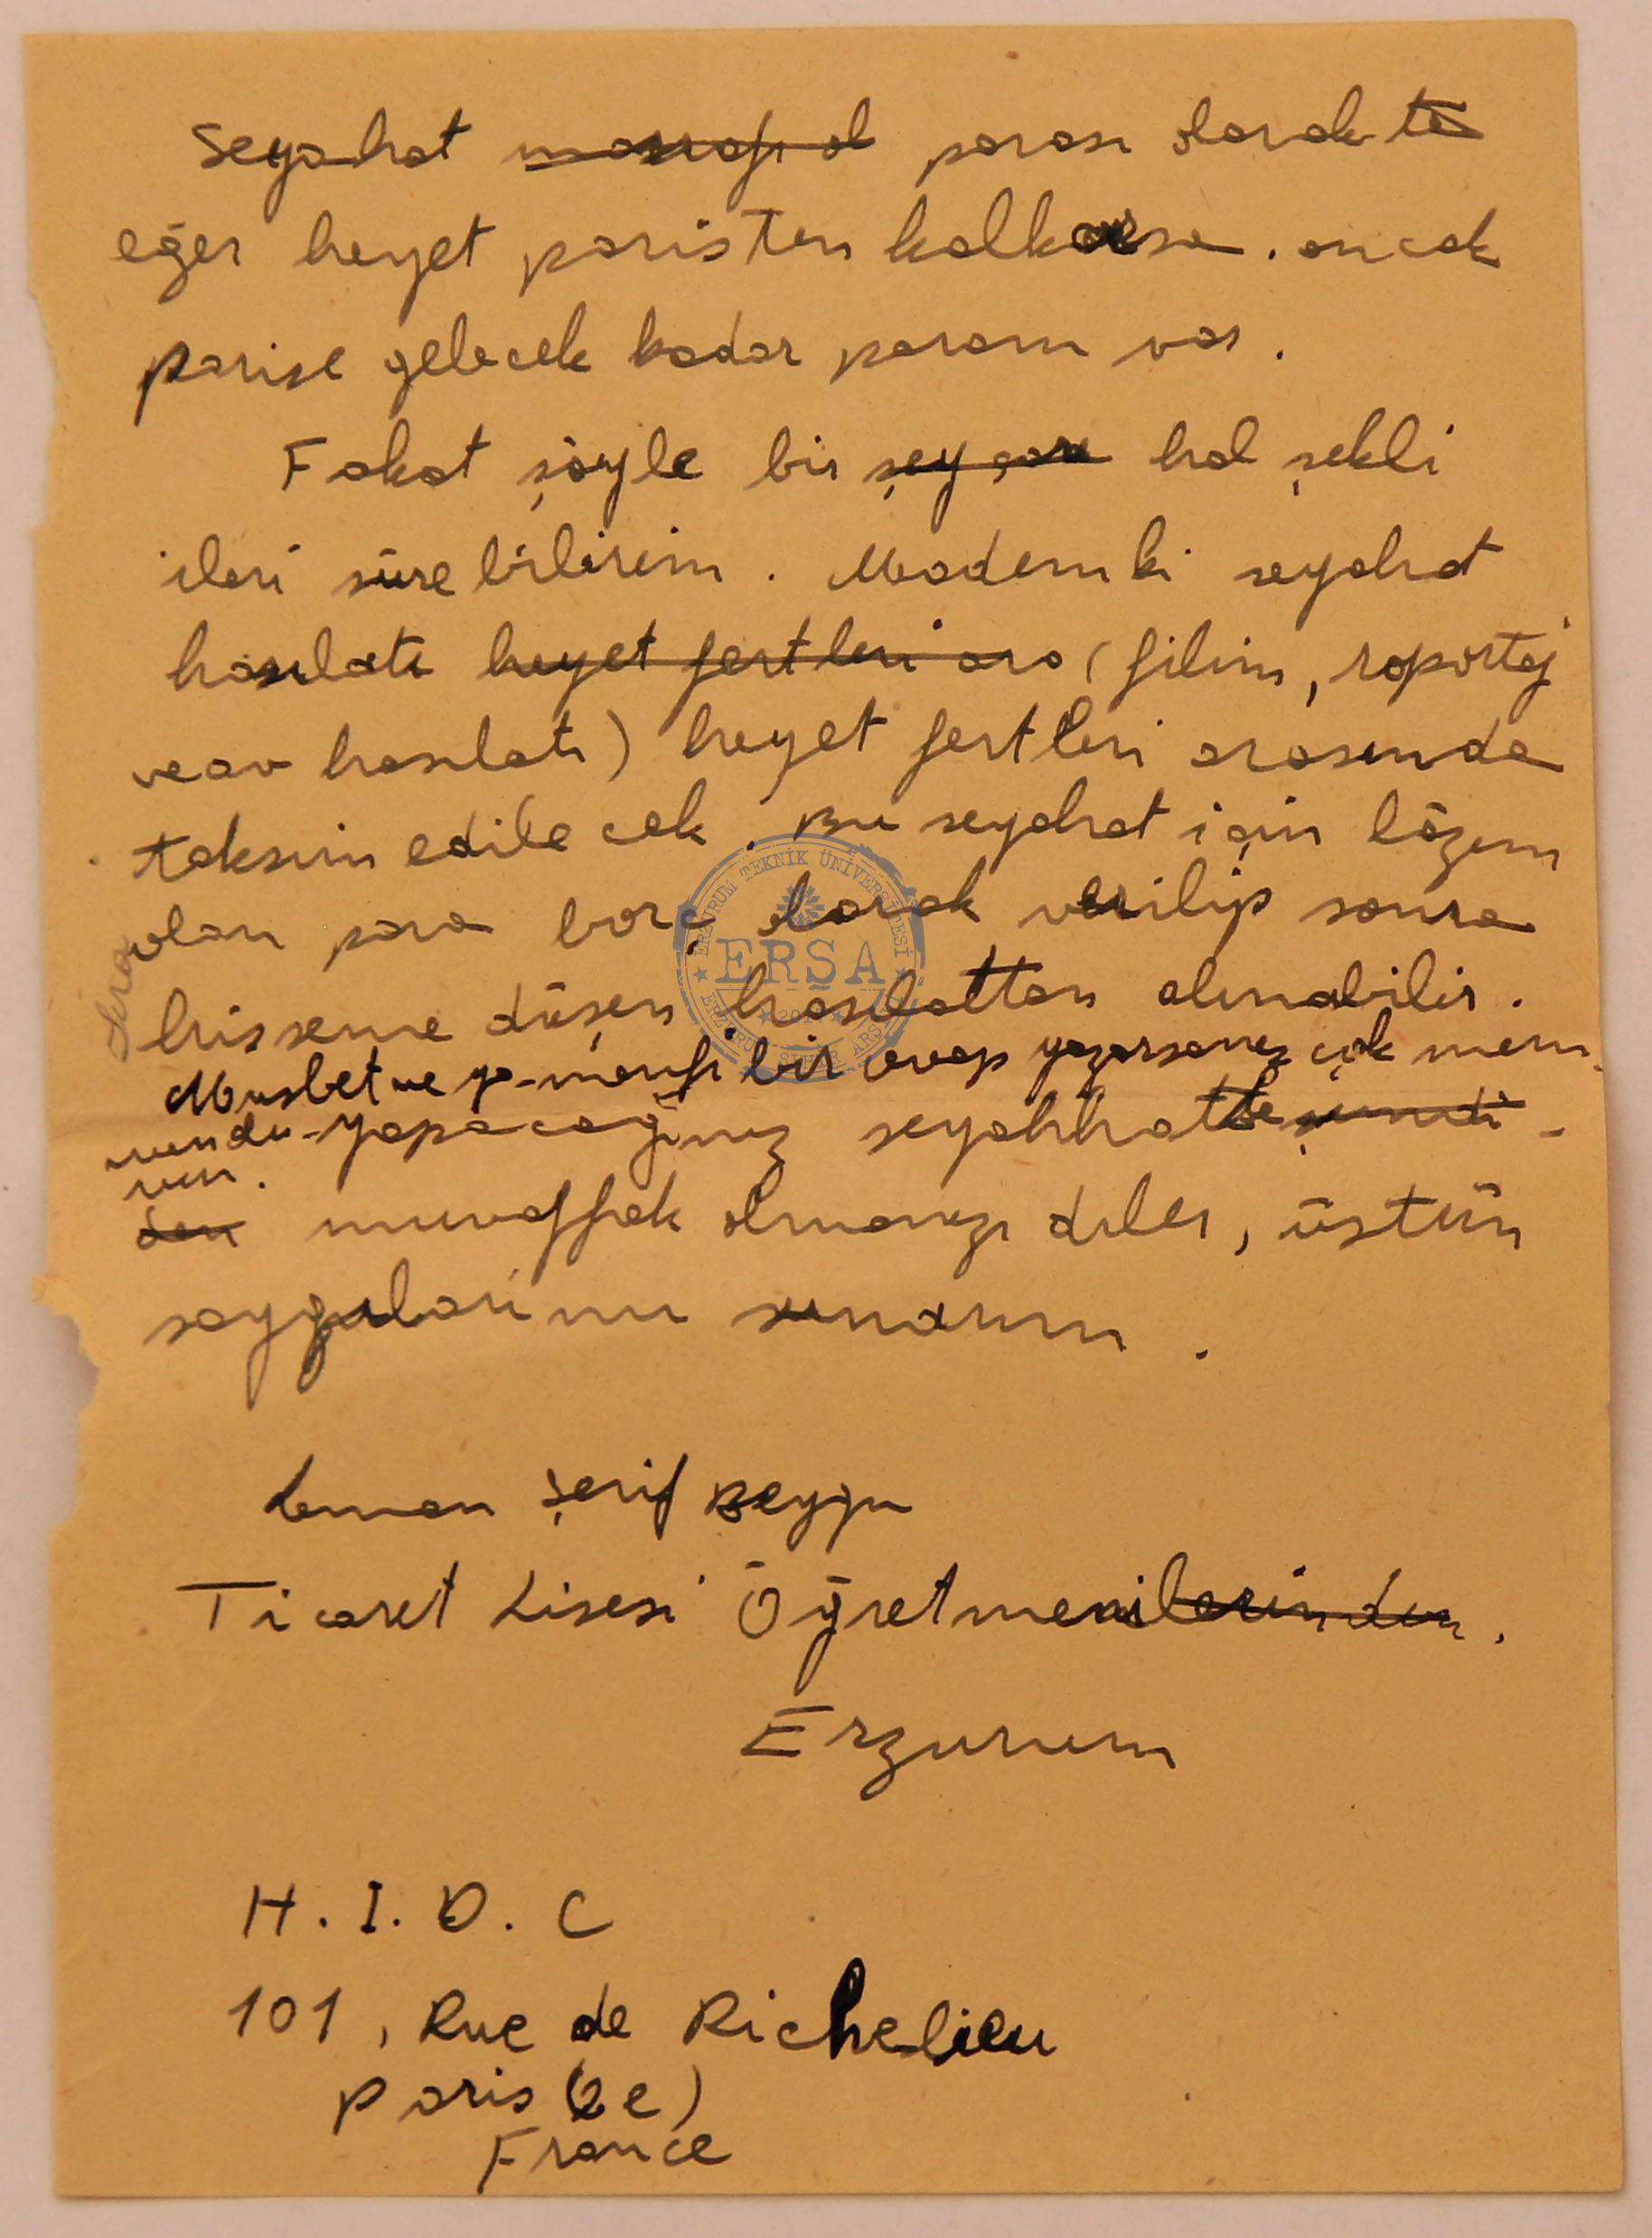 Seyahat masrafı ol parası olarak ta
eğer heyet paristen kalkarsa. ancak
parise gelecek kadar param var.
Fakat şöyle bir şey çare hal şekli
ileri sürebilirim. Mademki seyahat
hasılatı heyet fertleri ara (filim, roportaj
ve av hasılatı) heyet fertleri arasında
taksim edilecek. Bu seyahat için lâzım
olan para borç olarak verilip sonra
hisseme düşen hasılattan alınabilir.
Musbet ve ya menfi bir cevap yazarsanız çok mem-
nundu-yapacağınız seyahhatte şimdi-
num.
den muvaffak olmanızı diler, üstün
saygılarımı sunarım.
Şerif Beygu
Ticaret Lisesi Öğretmenilerinden.
Erzurum
H. I. D. C
101, Rue de Richelieu
Paris (2e)
France
ERZURUM TEKNİK ÜNİVERSİTESİ
ERSA
ERZURUM ŞEHİR ARŞİVİ